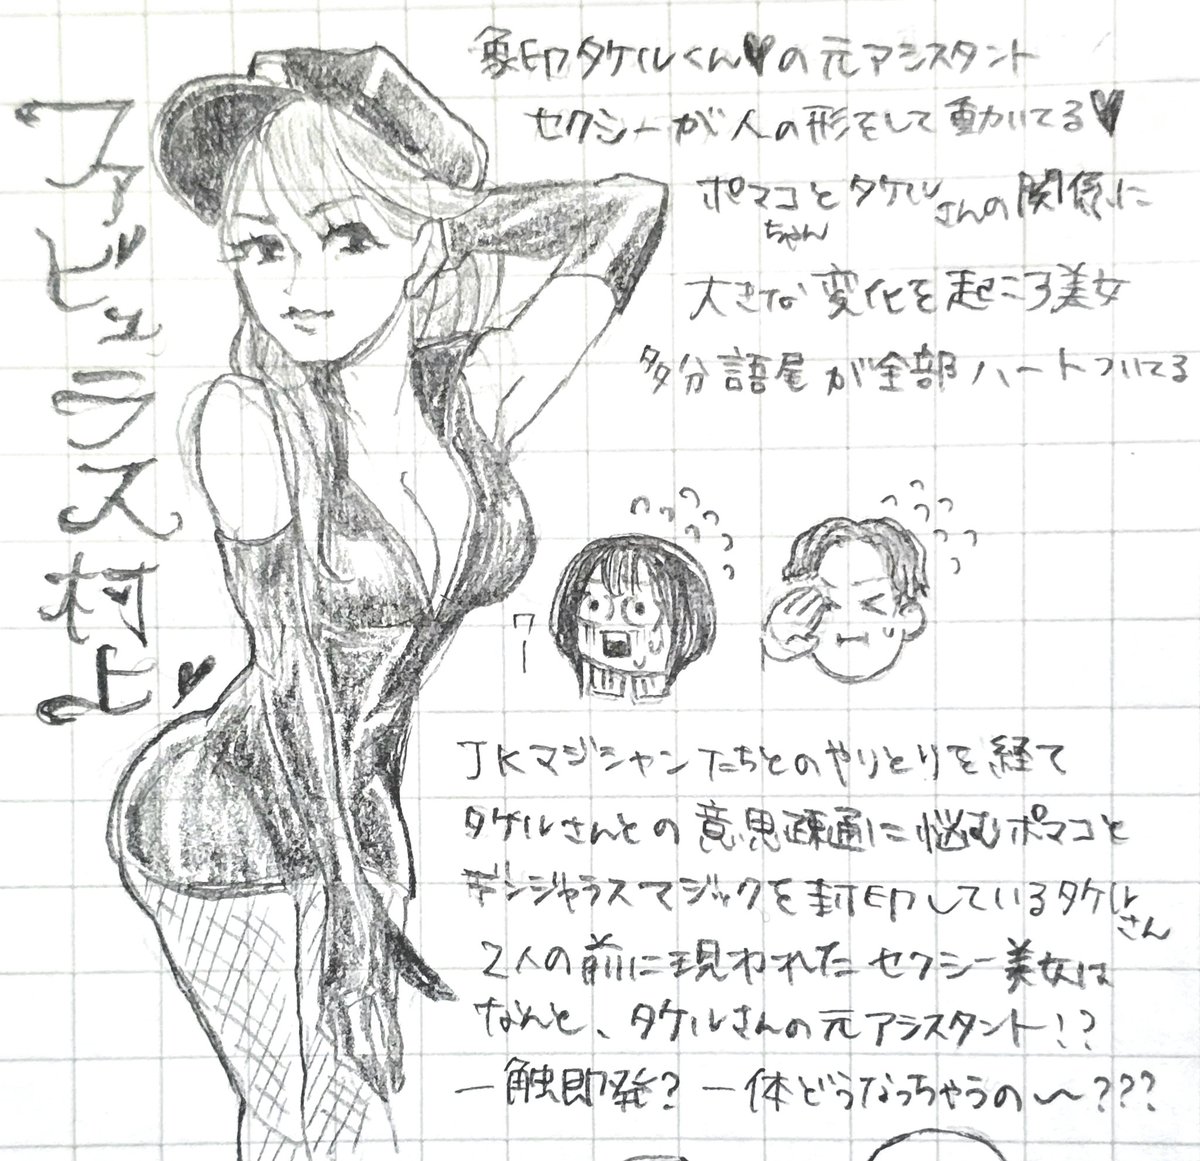 ファビュラス村上♥
象印タケルくん♥の元アシスタント
セクシーが人の形をして動いてる♥
ポマコちゃんとタケルさんの関係に
大きな変化を起こる美女
多分語尾が全部ハートついてる
ワー
JKマジシャンたちとのやりとりを経て
タケルさんとの意思疎通に悩むポマコと
デンジャラスマジックを封印しているタケルさん
2人の前に現われたセクシー美女は
なんと、タケルさんの元アシスタント!?
一触即発?一体どうなっちゃうの〜???